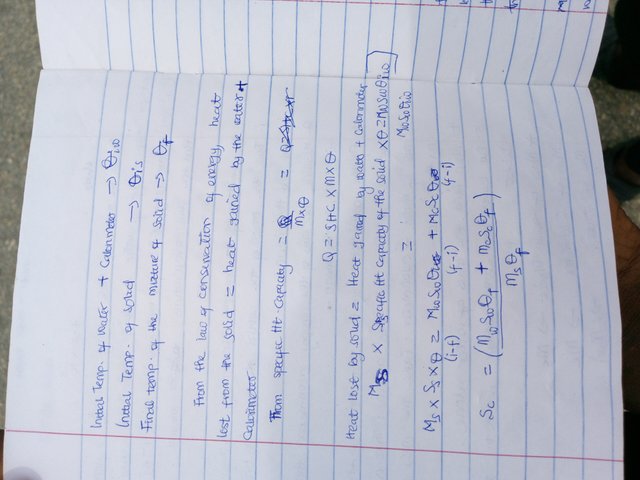 Initial Temp. of water + Calorimeter → θiw
Initial Temp. of solid → θis
Final temp. of the mixture of solid → θf
From the law of conservation of energy, heat
lost from the solid = heat gained by the water +
Calorimeter
From specific Ht capacity = Q/M×θ =
Q = SHC × M × θ
Heat lost by solid = Heat gained by water + Calorimeter
Ms × Specific Ht capacity of the solid × θ = MwSwθiw
= MwSwθiw
Ms × Ss × θ = MwSwθ + McScθ
(i-f) (f-i) (f-i)
Sc = (MwSwθf + McScθf) / Msθf